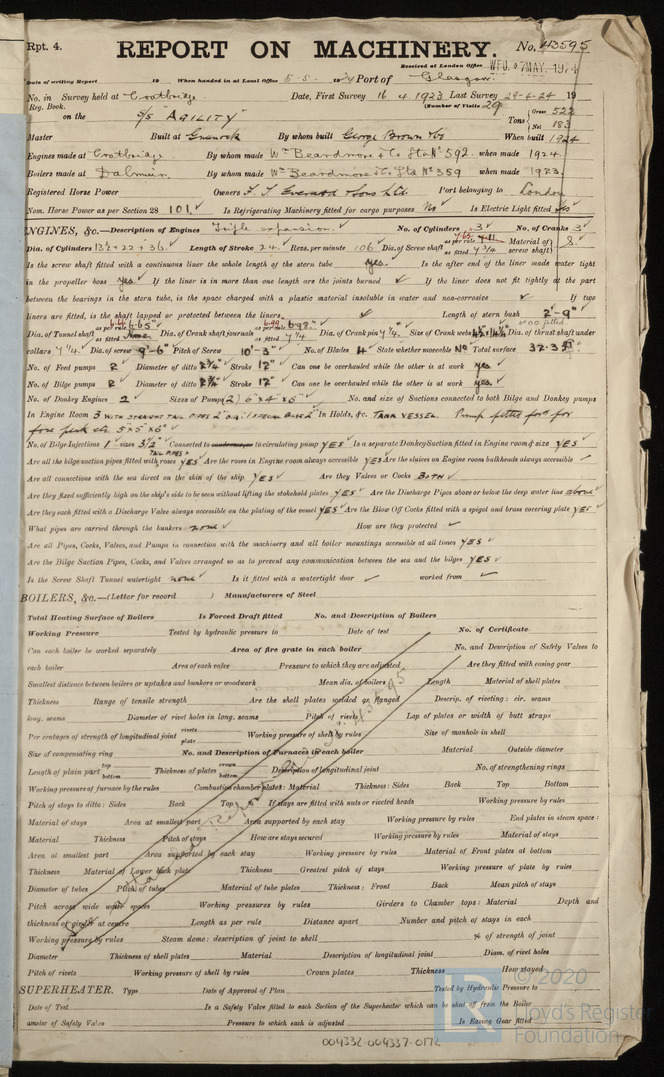 Rpt. 4.
REPORT ON MACHINERY.
No. 43595
Received at London Office WED. 7 MAY. 1924
Date of writing Report 19 When handed in at Local Office 5.5. 1924 Port of Glasgow
No. in Survey held at Coatbridge Date, First Survey 16.4.1923 Last Survey 29-4-24 19
Reg. Book. (Number of Visits 29
on the S/S "AGILITY" Tons { Gross 522 Net 183
Master Built at Greenock By whom built George Brown & Co When built 1924
Engines made at Coatbridge By whom made Wm Beardmore & Co Ltd No 592. when made 1924.
Boilers made at Dalmuir By whom made Wm Beardmore & Co. Ltd No 359 when made 1923.
Registered Horse Power Owners F. T. Everard & Sons Ltd Port belonging to London
Nom. Horse Power as per Section 28 101. Is Refrigerating Machinery fitted for cargo purposes No Is Electric Light fitted
ENGINES, &c.—Description of Engines Triple expansion. No. of Cylinders 3 No. of Cranks 3
Dia. of Cylinders 13½ + 22 + 36. Length of Stroke 24. Revs. per minute 106 Dia. of Screw shaft as per rule 7.11 as fitted 7 3/4 Material of screw shaft S.
Is the screw shaft fitted with a continuous liner the whole length of the stern tube yes. Is the after end of the liner made water tight
in the propeller boss yes. If the liner is in more than one length are the joints burned If the liner does not fit tightly at the part
between the bearings in the stern tube, is the space charged with a plastic material insoluble in water and non-corrosive If two
liners are fitted, is the shaft lapped or protected between the liners Length of stern bush 2'-9"
Dia. of Tunnel shaft as per rule 6.65" as fitted none Dia. of Crank shaft journals as per rule 6.98" as fitted 7 1/4 Dia. of Crank pin 7 1/4" Size of Crank webs Dia. of thrust shaft under
collars 7 1/4" Dia. of screw 9'-6" Pitch of Screw 10'-3" No. of Blades 4 State whether moveable No Total surface 32.3
No. of Feed pumps 2 Diameter of ditto 2 3/4" Stroke 12" Can one be overhauled while the other is at work yes.
No. of Bilge pumps 2 Diameter of ditto 2 3/4" Stroke 12" Can one be overhauled while the other is at work yes.
No. of Donkey Engines 2 Sizes of Pumps (2) 6"x4"x6" No. and size of Suctions connected to both Bilge and Donkey pumps
In Engine Room 3 WITH STRAIGHT TAIL PIPES 2" DIA. 1 SPECIAL BILGE 2" In Holds, &c. TANK VESSEL. Pump fitted ford for
fore peak etc 5"x5"x6"
No. of Bilge Injections 1 sizes 3½" Connected to condenser, or to circulating pump YES Is a separate Donkey Suction fitted in Engine room & size YES
Are all the bilge suction pipes fitted with roses TAIL PIPES YES Are the roses in Engine room always accessible YES Are the sluices on Engine room bulkheads always accessible
Are all connections with the sea direct on the skin of the ship YES Are they Valves or Cocks BOTH
Are they fixed sufficiently high on the ship's side to be seen without lifting the stokehold plates YES Are the Discharge Pipes above or below the deep water line above
Are they each fitted with a Discharge Valve always accessible on the plating of the vessel YES Are the Blow Off Cocks fitted with a spigot and brass covering plate YES
What pipes are carried through the bunkers none How are they protected
Are all Pipes, Cocks, Valves, and Pumps in connection with the machinery and all boiler mountings accessible at all times YES
Are the Bilge Suction Pipes, Cocks, and Valves arranged so as to prevent any communication between the sea and the bilges YES
Is the Screw Shaft Tunnel watertight none Is it fitted with a watertight door worked from
BOILERS, &c.—(Letter for record ) Manufacturers of Steel
Total Heating Surface of Boilers Is Forced Draft fitted No. and Description of Boilers
Working Pressure Tested by hydraulic pressure to Date of test No. of Certificate
Can each boiler be worked separately Area of fire grate in each boiler No. and Description of Safety Valves to
each boiler Area of each valve Pressure to which they are adjusted Are they fitted with easing gear
Smallest distance between boilers or uptakes and bunkers or woodwork Mean dia. of boilers Length Material of shell plates
Thickness Range of tensile strength Are the shell plates welded or flanged Descrip. of riveting: cir. seams
long. seams Diameter of rivet holes in long. seams Pitch of rivets Lap of plates or width of butt straps
Per centages of strength of longitudinal joint rivets plate Working pressure of shell by rules Size of manhole in shell
Size of compensating ring No. and Description of Furnaces in each boiler Material Outside diameter
Length of plain part top bottom Thickness of plates crown bottom Description of longitudinal joint No. of strengthening rings
Working pressure of furnace by the rules Combustion chamber plates: Material Thickness: Sides Back Top Bottom
Pitch of stays to ditto: Sides Back Top If stays are fitted with nuts or riveted heads Working pressure by rules
Material of stays Area at smallest part Area supported by each stay Working pressure by rules End plates in steam space:
Material Thickness Pitch of stays How are stays secured Working pressure by rules Material of stays
Area at smallest part Area supported by each stay Working pressure by rules Material of Front plates at bottom
Thickness Material of Lower back plate Thickness Greatest pitch of stays Working pressure of plate by rules
Diameter of tubes Pitch of tubes Material of tube plates Thickness: Front Back Mean pitch of stays
Pitch across wide water spaces Working pressures by rules Girders to Chamber tops: Material Depth and
thickness of girder at centre Length as per rule Distance apart Number and pitch of stays in each
Working pressure by rules Steam dome: description of joint to shell % of strength of joint
Diameter Thickness of shell plates Material Description of longitudinal joint Diam. of rivet holes
Pitch of rivets Working pressure of shell by rules Crown plates Thickness How stayed
SUPERHEATER. Type Date of Approval of Plan Tested by Hydraulic Pressure to
Date of Test Is a Safety Valve fitted to each Section of the Superheater which can be shut off from the Boiler
ameter of Safety Valve Pressure to which each is adjusted Is Easing Gear fitted
004332-004337-0172
© 2020
Lloyd's Register
Foundation